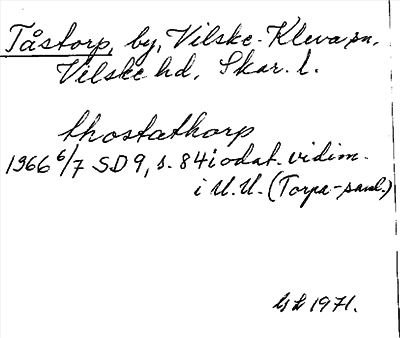 Tåstorp, by, Vilske-Kleva sn,
Vilske hd, Skar. l.
thostathorp
1966 6/7 SD 9, s. 84 i odat. vidim.
i U.U. (Torpa-saml.)
1971.